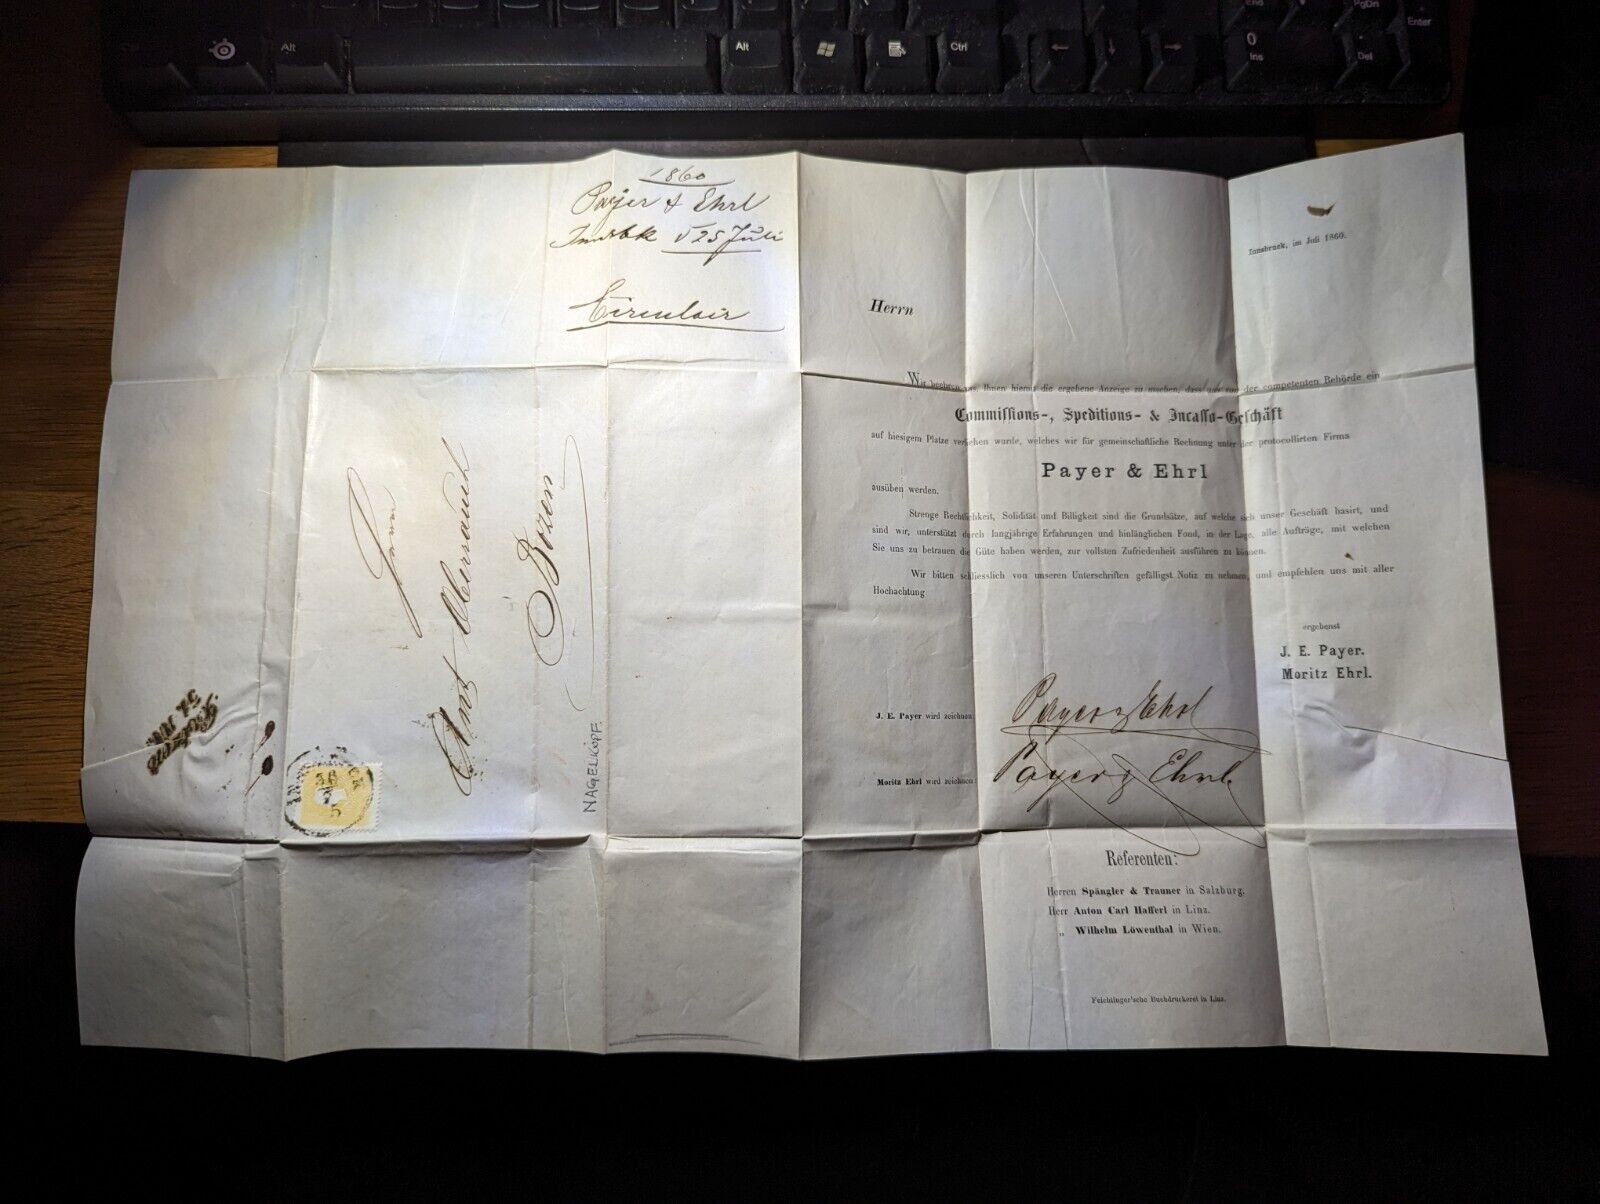 Alt
Alt
Ctrl
End
PgDn
Enter
0
Ins
Del
1860
Payer & Ehrl
Innsbk 25 Juli
Circulair
Herrn
Ant Oberrauch
Bozen
NAGELKOPF
Bozen
31
Innsbruck, im Juli 1860.
Herrn
Wir beehren uns, Ihnen hiermit die ergebene Anzeige zu machen, dass uns von der competenten Behörde ein
Commissions-, Speditions- & Incasso-Geschäft
auf hiesigem Platze verliehen wurde, welches wir für gemeinschaftliche Rechnung unter der protocollirten Firma
Payer & Ehrl
ausüben werden.
Strenge Rechtlichkeit, Solidität und Billigkeit sind die Grundsätze, auf welche sich unser Geschäft basirt, und
sind wir, unterstützt durch langjährige Erfahrungen und hinlänglichen Fond, in der Lage, alle Aufträge, mit welchen
Sie uns zu betrauen die Güte haben werden, zur vollsten Zufriedenheit ausführen zu können.
Wir bitten schliesslich von unseren Unterschriften gefälligst Notiz zu nehmen, und empfehlen uns mit aller
Hochachtung
ergebenst
J. E. Payer.
Moritz Ehrl.
J. E. Payer wird zeichnen
Payer & Ehrl
Moritz Ehrl wird zeichnen
Payer & Ehrl
Referenten:
Herren Spängler & Trauner in Salzburg.
Herr Anton Carl Hafferl in Linz.
„ Wilhelm Löwenthal in Wien.
Feichtinger'sche Buchdruckerei in Linz.